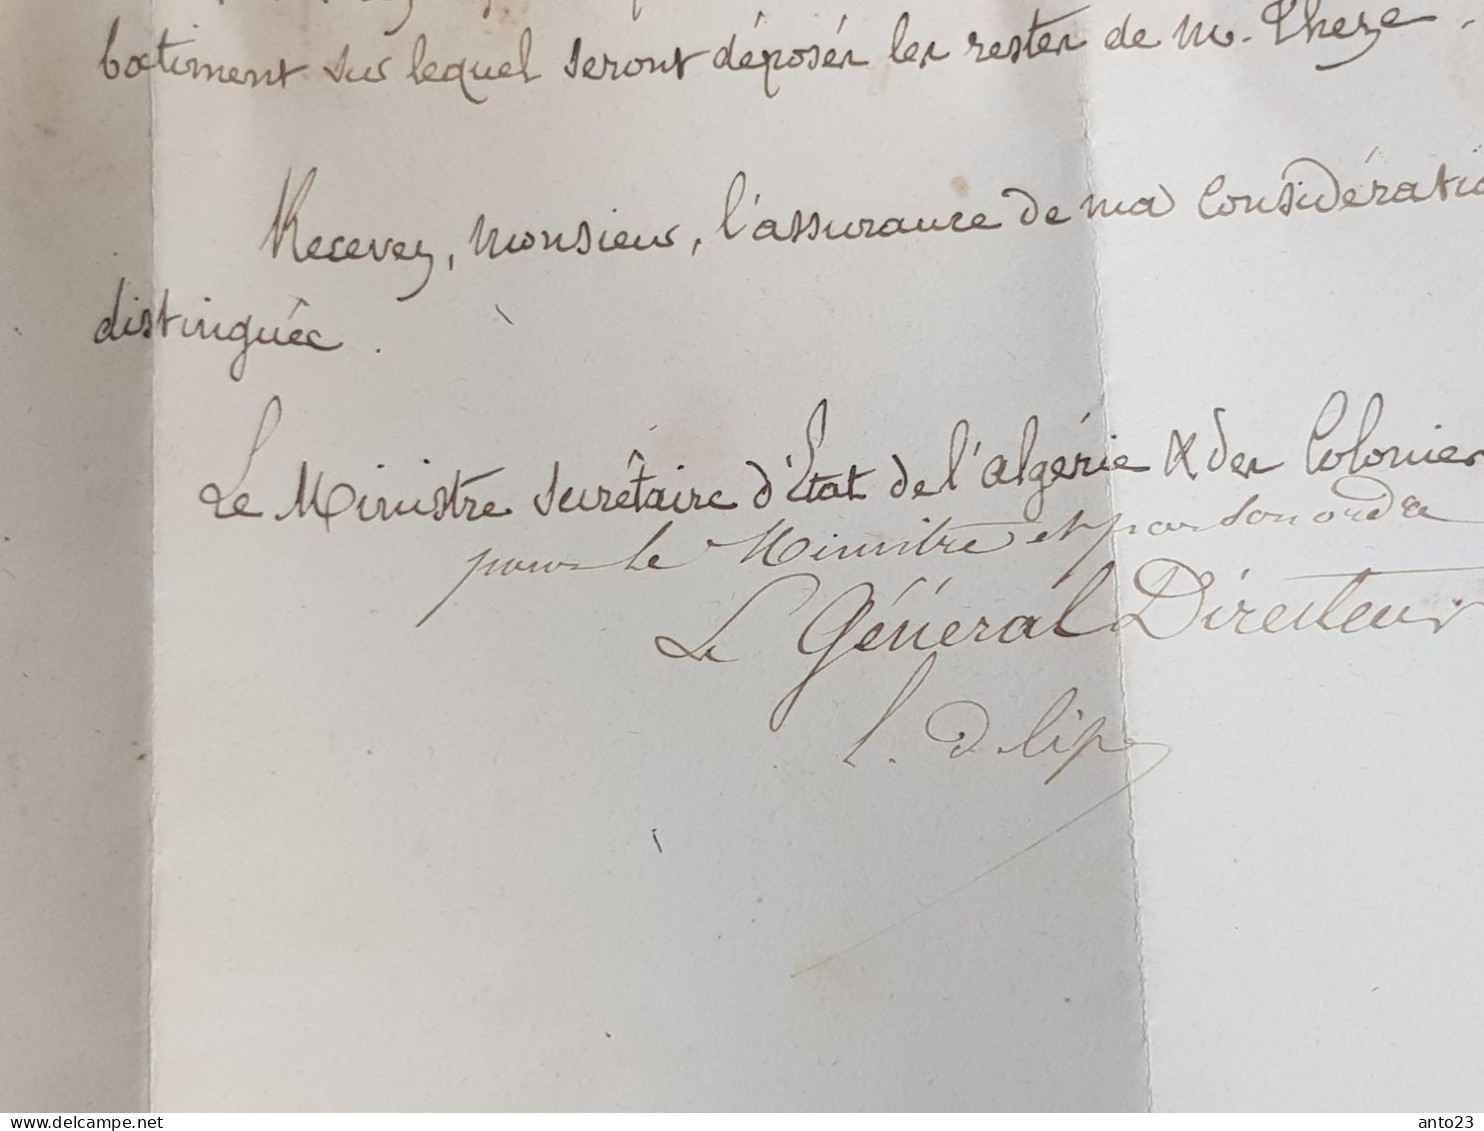 bâtiment sur lequel seront déposés les restes de M. Theze.
Recevez, Monsieur, l'assurance de ma considératio
distinguée.
Le Ministre Secrétaire d'Etat de l'algérie & des Colonies
pour le Ministre et par son ordre
Le Général Directeur
anto23